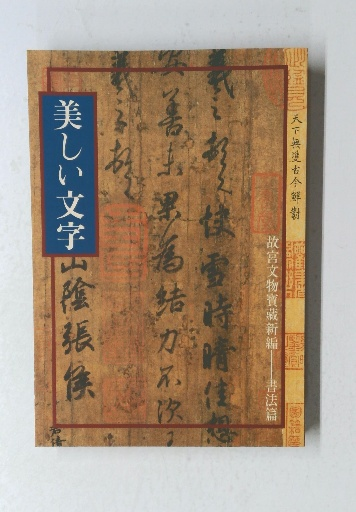 美しい文字
天下無雙古今鮮對
羲之頓首快雪時晴佳想
安善未果為結力不次王
羲之頓首
山陰張侯
故宮文物寶藏新編——書法篇